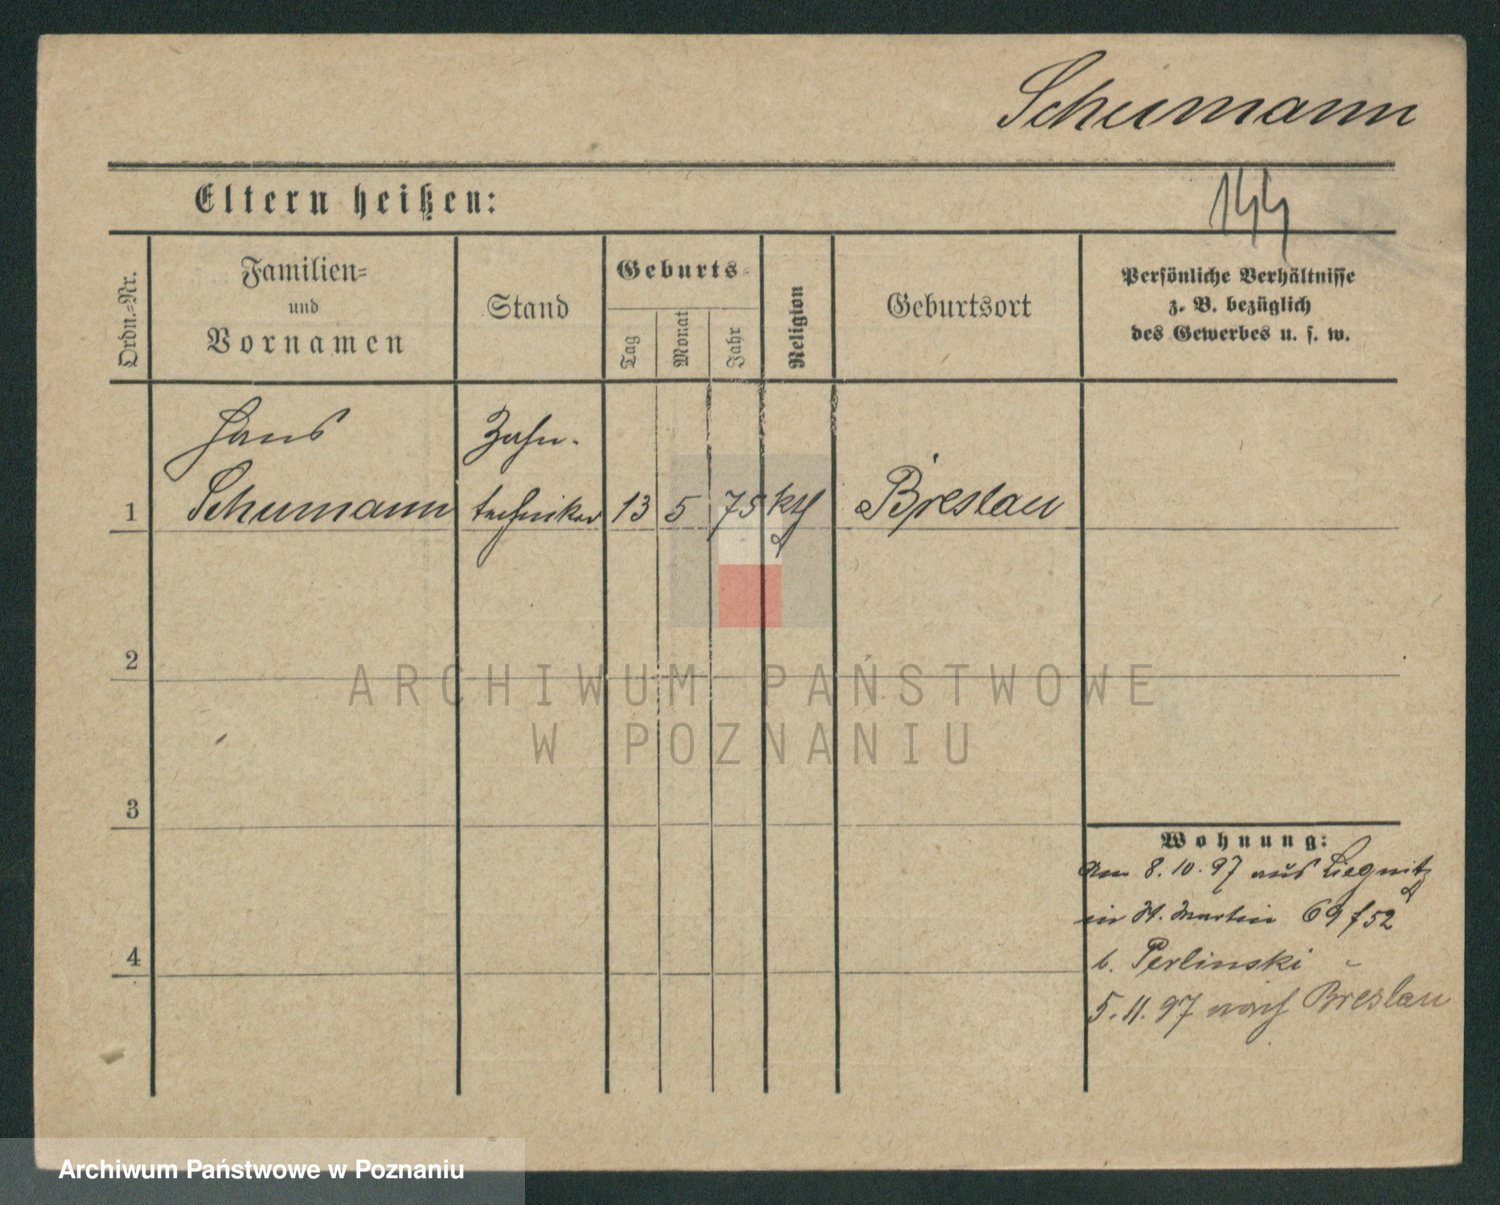 Schumann
144
Eltern heißen:
Ordn.=Nr.
Familien=
und
Vornamen
Stand
Geburts=
Tag
Monat
Jahr
Religion
Geburtsort
Persönliche Verhältnisse
z. B. bezüglich
des Gewerbes u. s. w.
Hans
Zahn-
1 Schumann techniker 13 5 75 kth Breslau
2
ARCHIWUM PAŃSTWOWE
W POZNANIU
3
Wohnung:
am 8.10.97 aus Liegnitz
in St. Martin 69 f 52
b. Perlinski
4
5.11.97 nach Breslau
Archiwum Państwowe w Poznaniu